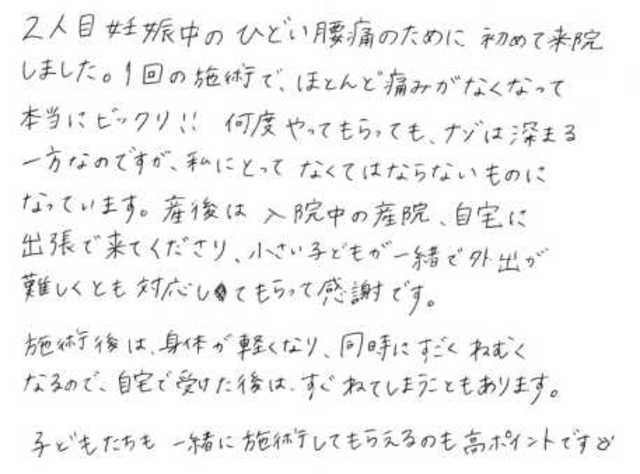 2人目妊娠中のひどい腰痛のために初めて来院
しました。1回の施術で、ほとんど痛みがなくなって
本当にビックリ!! 何度やってもらっても、ナゾは深まる
一方なのですが、私にとってなくてはならないものに
なっています。産後は入院中の産院、自宅に
出張で来てくださり、小さい子どもが一緒で外出が
難しくとも対応してもらって感謝です。
施術後は、身体が軽くなり、同時にすごくねむく
なるので、自宅で受けた後は、すぐねてしまうこともあります。
子どもたちも一緒に施術してもらえるのも高ポイントです♡